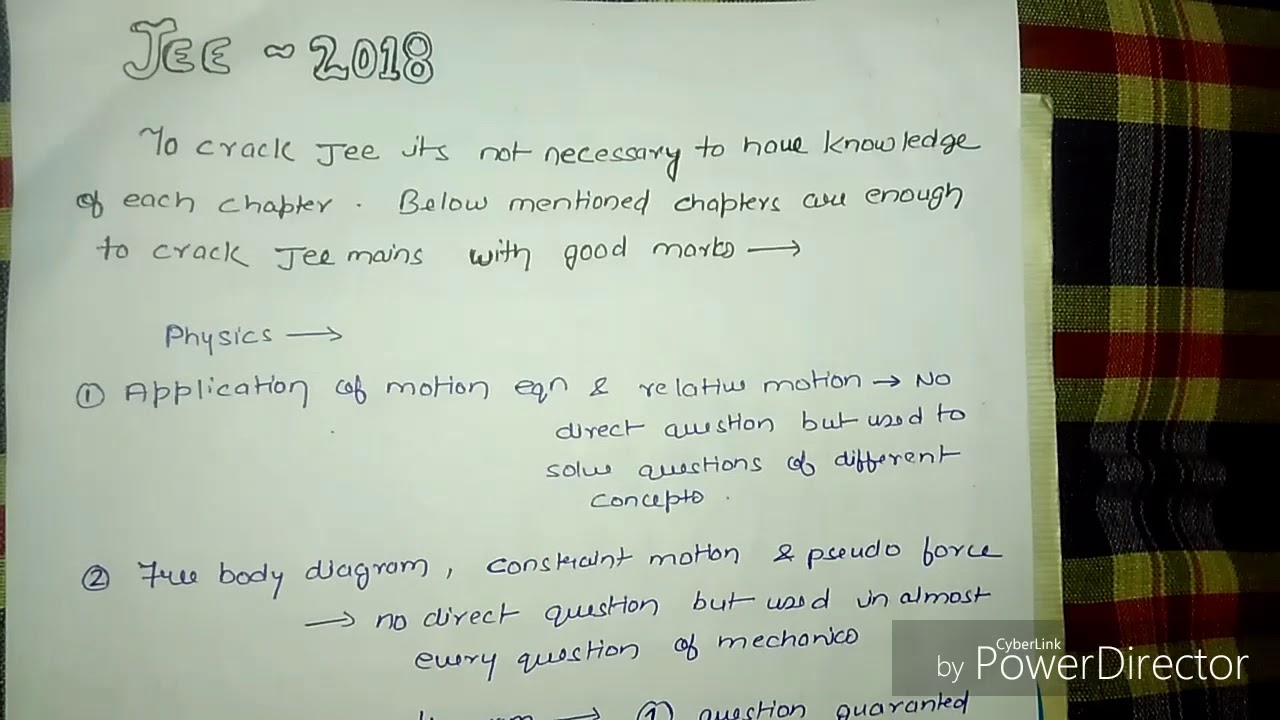 JEE ~ 2018
To crack Jee its not necessary to have knowledge
of each chapter. Below mentioned chapters are enough
to crack Jee mains with good marks →
Physics →
① Application of motion eqn & relative motion → No
direct question but used to
solve questions of different
concepts.
② Free body diagram, constraint motion & pseudo force
→ no direct question but used in almost
every question of mechanics
→ ① question guaranted
CyberLink
by PowerDirector